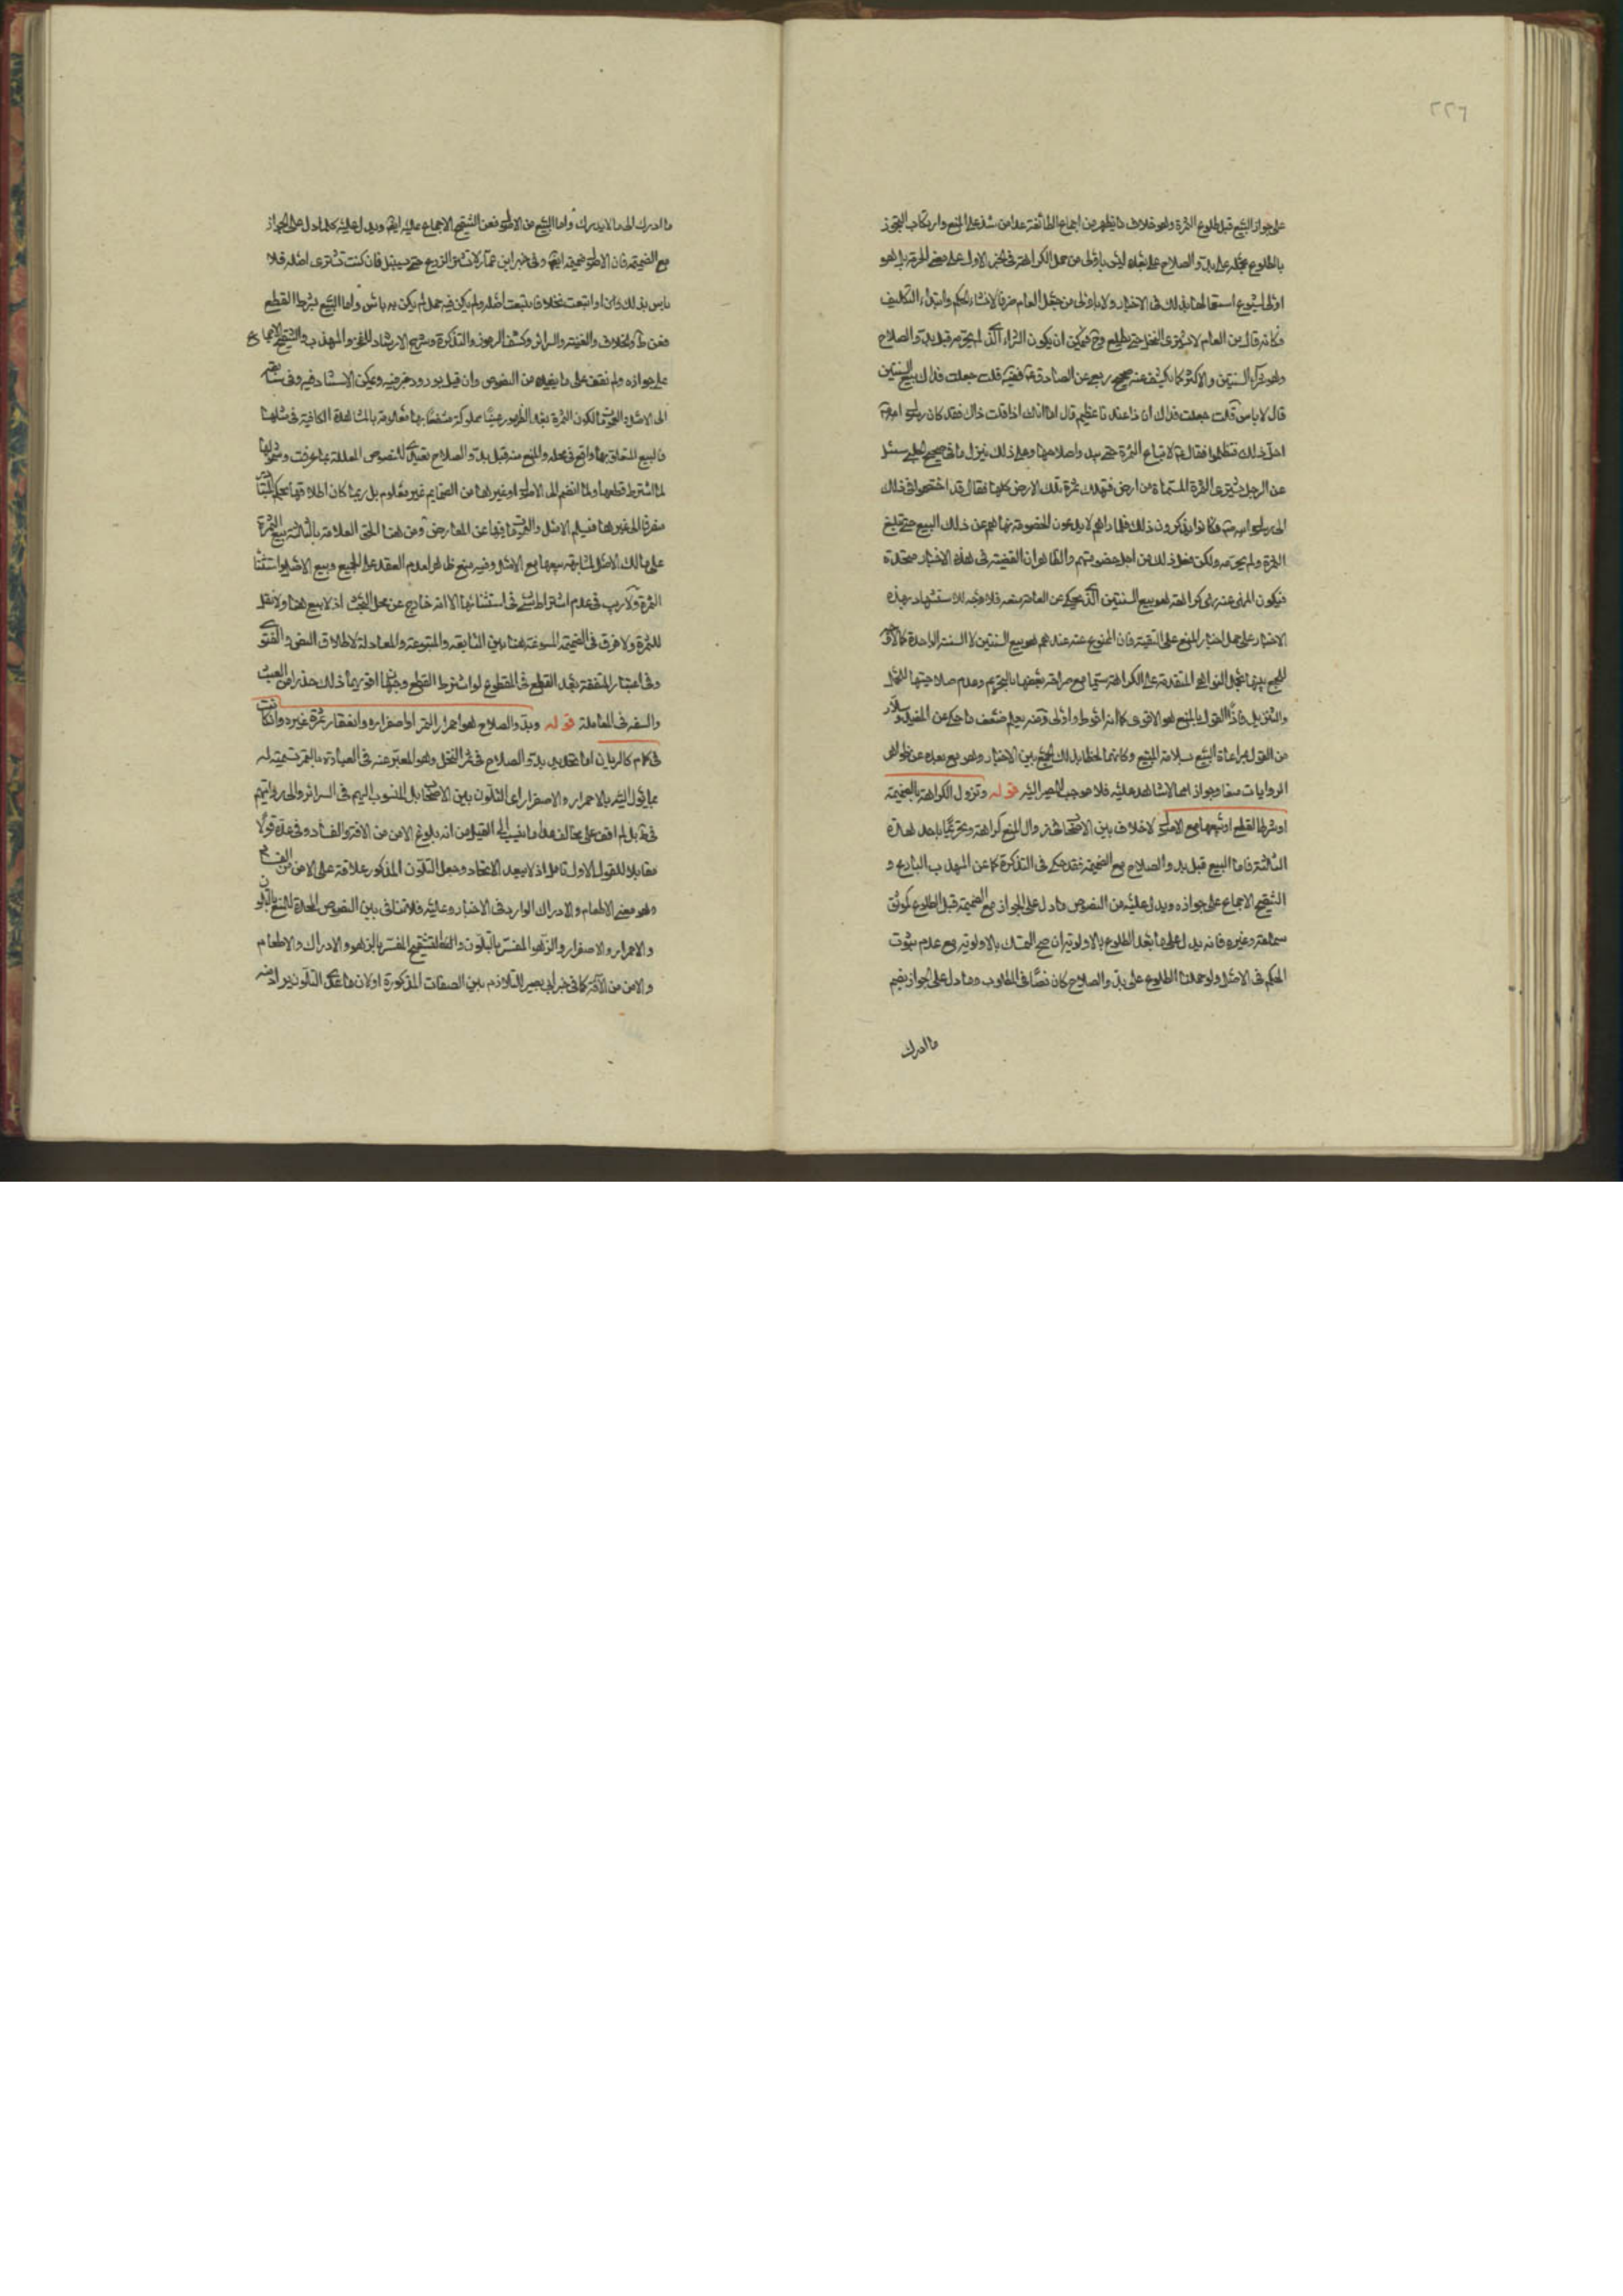 ٢٢٦
على جواز البيع قبل طلوع الثمرة وهو خلاف ما يظهر من اجماع الطائفة عدا من شذ على المنع وارتكاب التجوز
بالطلوع بحمله على بدو الصلاح على بعده ليس باولى من حمل الكراهة في الخبر الاول على معنى الحرمة بل هو
اولى لشيوع استعمالها بذلك في الاخبار ولا باولى من جعل العام ظرفا لانشاء الحكم وابتداء التكليف
فكانه قال من العام لا تشترى النخل حتى يطلع وح فيمكن ان يكون الشراء الذي لم يحرمه قبل بدو الصلاح
وهو شراء السنتين والاكثر كما يكشف عنه صحيح ربعي عن الصادق ع قلت جعلت فداك بيع السنتين
قال لا باس قلت جعلت فداك ان ذا عندنا عظيم قال اما انك اذا قلت ذاك فقد كان رسول الله ص
احل ذلك فتظلموا فقال ع لا تباع الثمرة حتى يبدو صلاحها وعلى ذلك ينزل ما في صحيح الحلبي سئل
عن الرجل يشترى الثمرة المسماة من ارض فتهلك ثمرة تلك الارض كلها فقال قد اختصموا في ذلك
الى رسول الله ص فكانوا يذكرون ذلك فلما راهم لا يدعون الخصومة نهاهم عن ذلك البيع حتى تبلغ
الثمرة ولم يحرمه ولكن فعل ذلك من اجل خصومتهم والظاهر ان القضية في هذه الاخبار متحدة
فيكون المنهى عنه نهى كراهة هو بيع السنتين الذي يحكى عن العامة منعه فلا وجه للاستشهاد بهذه
الاخبار على حمل اخبار المنع على التقية فان الممنوع عنه عندهم هو بيع السنتين لا السنة الواحدة
للجمع بينها بحمل النواهي المتقدمة على الكراهة سيما مع صراحة بعضها بالتحريم وعدم صلاحيتها للحمل
والتنزيل فاذا القول بالمنع هو الاقوى كما انه احوط واولى ومنه يعلم ضعف ما حكى عن المفيد وسلار
من القول بمراعاة البيع سلامة المبيع وكانهما لحظا بذلك الجمع بين الاخبار وهو مع بعده عن ظواهر
الروايات منعا وجوازا مما لا شاهد عليه فلا موجب للمصير اليه قوله وتزول الكراهة بالضميمة
او شرط القطع او بيعها مع الاصول لا خلاف بين الاصحاب في زوال المنع كراهة وتحريما باحد هذه
الثلثة فاما البيع قبل بدو الصلاح مع الضميمة فقد حكى في التذكرة كما عن المهذب البارع و
التنقيح الاجماع على جوازه ويدل عليه من النصوص ما دل على الجواز مع الضميمة قبل الطلوع كموثق
سماعة وغيره فانه يدل على ما بعد الطلوع بالاولوية ان صح التمسك بالاولوية مع عدم ثبوت
الحكم في الاصل ولو حملنا الطلوع على بدو الصلاح كان نصا في المطلوب وما دل على الجواز بضم
ما ادرك
ما ادرك الى ما لا يدرك واما البيع مع الاصول فعن التنقيح الاجماع عليه ايضا ويدل عليه كلما دل على الجواز
مع الضميمة فان الاصول ضميمة ايضا وفي خبر ابن عمار لا تشتر الزرع حتى يسنبل فان كنت تشترى اصله فلا
باس بذلك او ابتعت نخلا فابتعت اصله ولم يكن فيه حمل لم يكن به باس واما البيع بشرط القطع
فعن ط والخلاف والغنية والسرائر وكشف الرموز والتذكرة وشرح الارشاد للفخر والمهذب والتنقيح الاجماع
على جوازه ولم نقف على ما يفيده من النصوص وان قيل بورود خبر فيه ويمكن الاستناد فيه وفي سابقه
الى الاصل والعمومات لكون الثمرة بعد الظهور عينا مملوكة منتفعا بها معلومة بالمشاهدة الكافية في مثلها
فالبيع المتعلق بها واقع في محله والمنع منه قبل بدو الصلاح تعبدا للنصوص المعللة بما عرفت وشمولها
لما اشترط قطعها ولما انضم الى الاصول او غيرها من الضمايم غير معلوم بل ربما كان اطلاقها بحكم التبادر
منصرفا الى غيرها فيسلم الاصل والعمومات فيها عن المعارض ومن هنا الحق العلامة بالثلاثة بيع الثمرة
على مالك الاصل لمشابهته بيعها مع الاصل وفيه منع ظاهر لعدم العقد على الجميع وبيع الاصل واستثناء
الثمرة ولا ريب في عدم اشتراط شيء في استثنائها الا انه خارج عن محل البحث اذ لا بيع هنا ولا نقل
للثمرة ولا فرق في الضميمة المسوغة هنا بين التابعة والمتبوعة والمعادلة لاطلاق النص والفتوى
وفي اعتبار المنفعة بعد القطع في المقطوع لو اشترط القطع وجهان اقربهما ذلك حذرا من العبث
والسفه في المعاملة قوله وبدو الصلاح هو احمرار التمر او اصفراره وانعقاد ثمرة غيره وان كانت
في كمام كالرمان اما تحديد بدو الصلاح في ثمر النخل وهو المعبر عنه في العبارة بالتمر تسمية له
بما يؤل اليه بالاحمرار والاصفرار اعنى التلون بين الاصحاب بل المنسوب اليهم في السرائر والى روايتهم
في بل لم اقف على مخالف عدا ما نسب الى القيل من انه بلوغ الامن من الافة والفساد وفي عده قولا
مقابلا للقول الاول تامل اذ لا يبعد الاتحاد وجعل التلون المذكور علامة على الامن من الفساد
وهو معنى الاطعام والادراك الوارد في الاخبار وعليه فلا تنافى بين النصوص المحددة للمنع بالتلون
والاحمرار والاصفرار والزهو المفسر بالتلون والتشقيح المفسر بالزهو والادراك والاطعام
والامن من الآفة كما في خبر ابي بصير للتلازم بين الصفات المذكورة او لان ما عدا التلون يراد منه